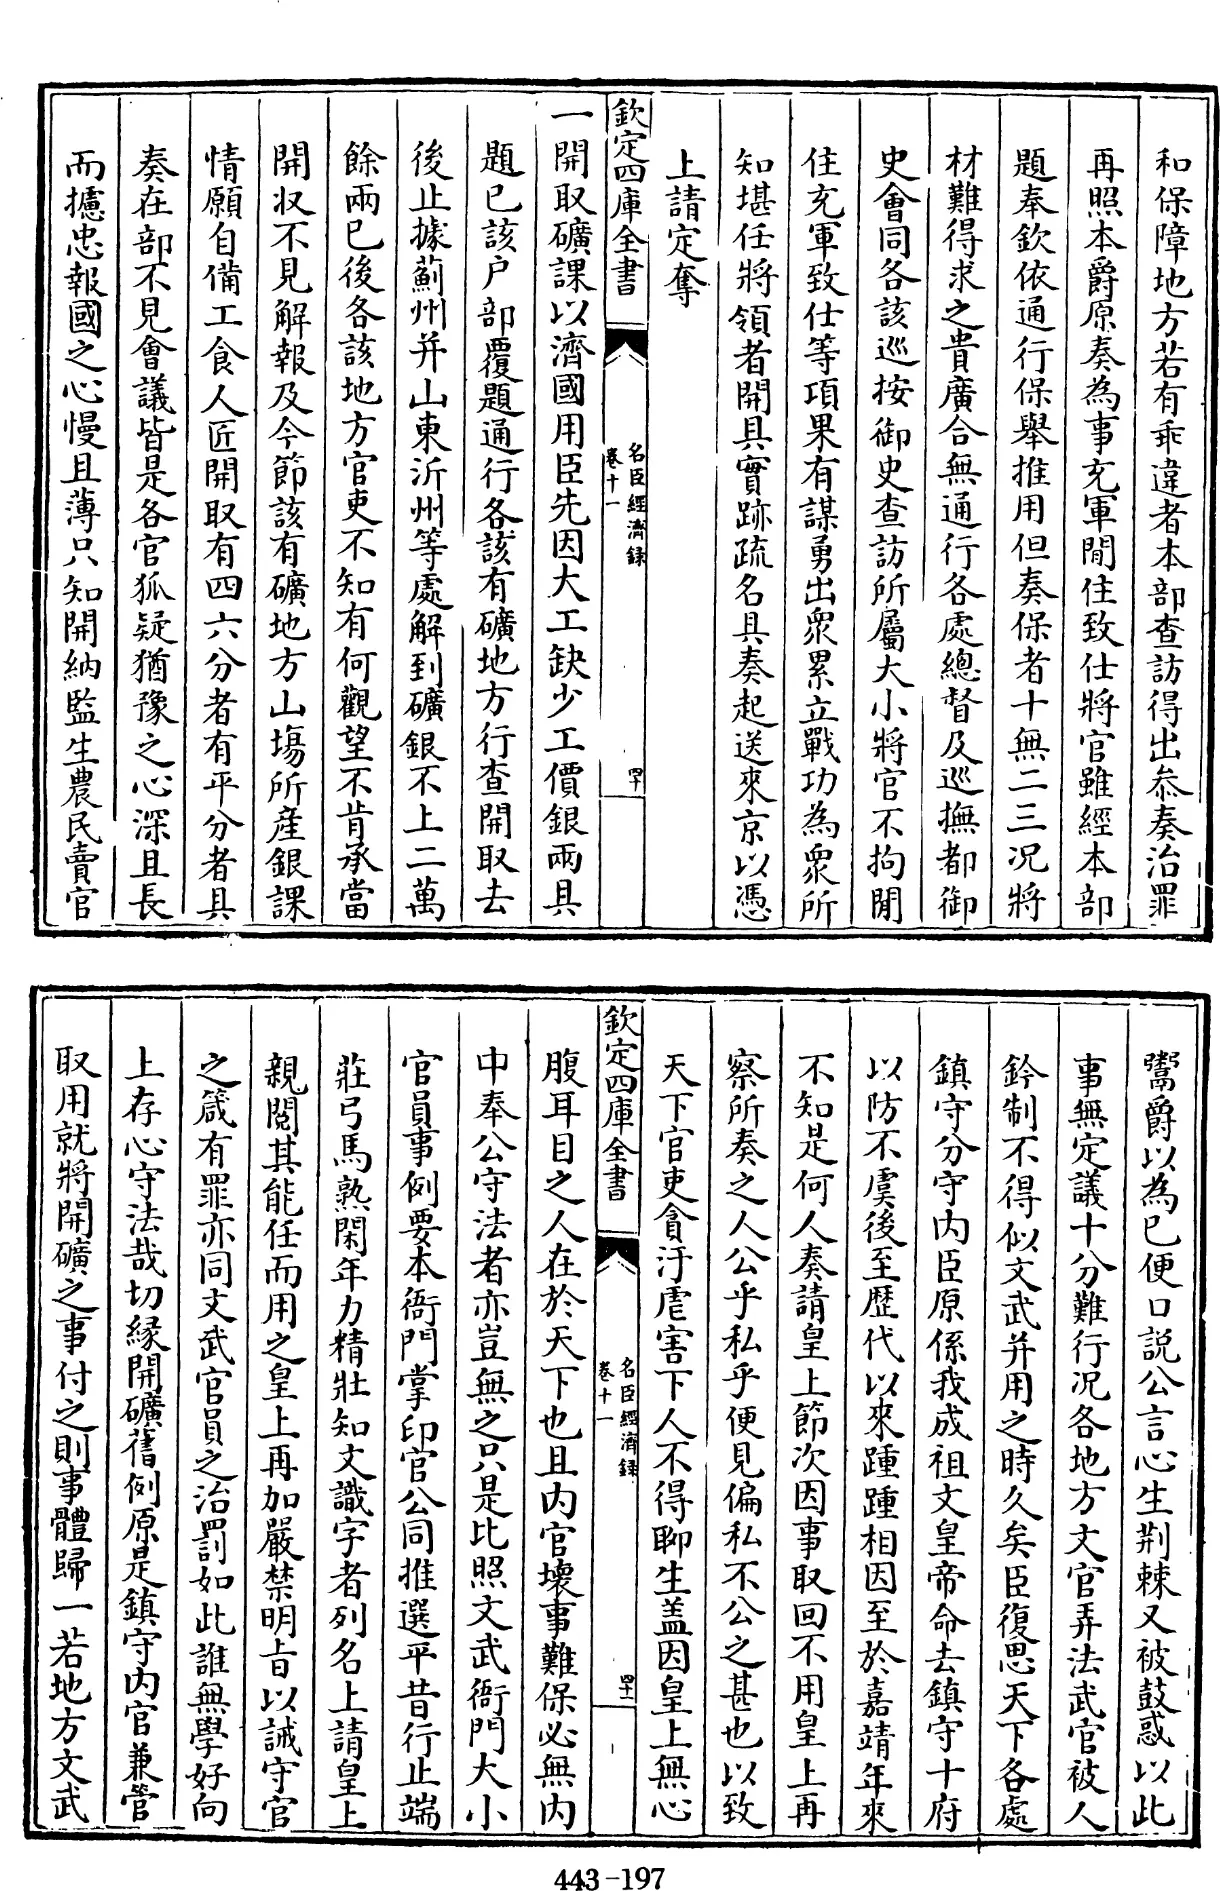 和保障地方若有乖違者本部查訪得出叅奏治罪
再照本爵原奏為事充軍閒住致仕將官雖經本部
題奉欽依通行保舉推用但奏保者十無二三况將
材難得求之貴廣合無通行各處總督及巡撫都御
史會同各該巡按御史查訪所屬大小將官不拘閒
住充軍致仕等項果有謀勇出衆累立戰功為衆所
知堪任將領者開具實跡疏名具奏起送來京以憑
上請定奪
欽定四庫全書
名臣經濟録
卷十一
四十
一開取礦課以濟國用臣先因大工缺少工價銀兩具
題已該户部覆題通行各該有礦地方行查開取去
後止據薊州并山東沂州等處解到礦銀不上二萬
餘兩已後各該地方官吏不知有何觀望不肯承當
開収不見解報及今節該有礦地方山塲所産銀課
情願自備工食人匠開取有四六分者有平分者具
奏在部不見會議皆是各官狐疑猶豫之心深且長
而攄忠報國之心慢且薄只知開納監生農民賣官
鬻爵以為已便口說公言心生荆棘又被鼓惑以此
事無定議十分難行况各地方文官弄法武官被人
鈐制不得似文武并用之時久矣臣復思天下各處
鎮守分守内臣原係我成祖文皇帝命去鎮守十府
以防不虞後至歴代以來踵踵相因至於嘉靖年來
不知是何人奏請皇上節次因事取回不用皇上再
察所奏之人公乎私乎便見偏私不公之甚也以致
天下官吏貪汙虐害下人不得聊生盖因皇上無心
欽定四庫全書
名臣經濟録
卷十一
四十一
腹耳目之人在於天下也且内官壞事難保必無内
中奉公守法者亦豈無之只是比照文武衙門大小
官員事例要本衙門掌印官公同推選平昔行止端
莊弓馬熟閑年力精壯知文識字者列名上請皇上
親閱其能任而用之皇上再加嚴禁明旨以誡守官
之箴有罪亦同文武官員之治罰如此誰無學好向
上存心守法哉切縁開礦舊例原是鎮守内官兼管
取用就將開礦之事付之則事體歸一若地方文武
443-197